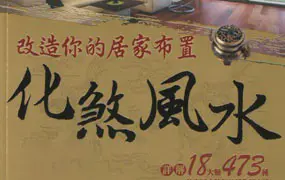 改造你的居家布置
化煞風水
詳解18大類473圖